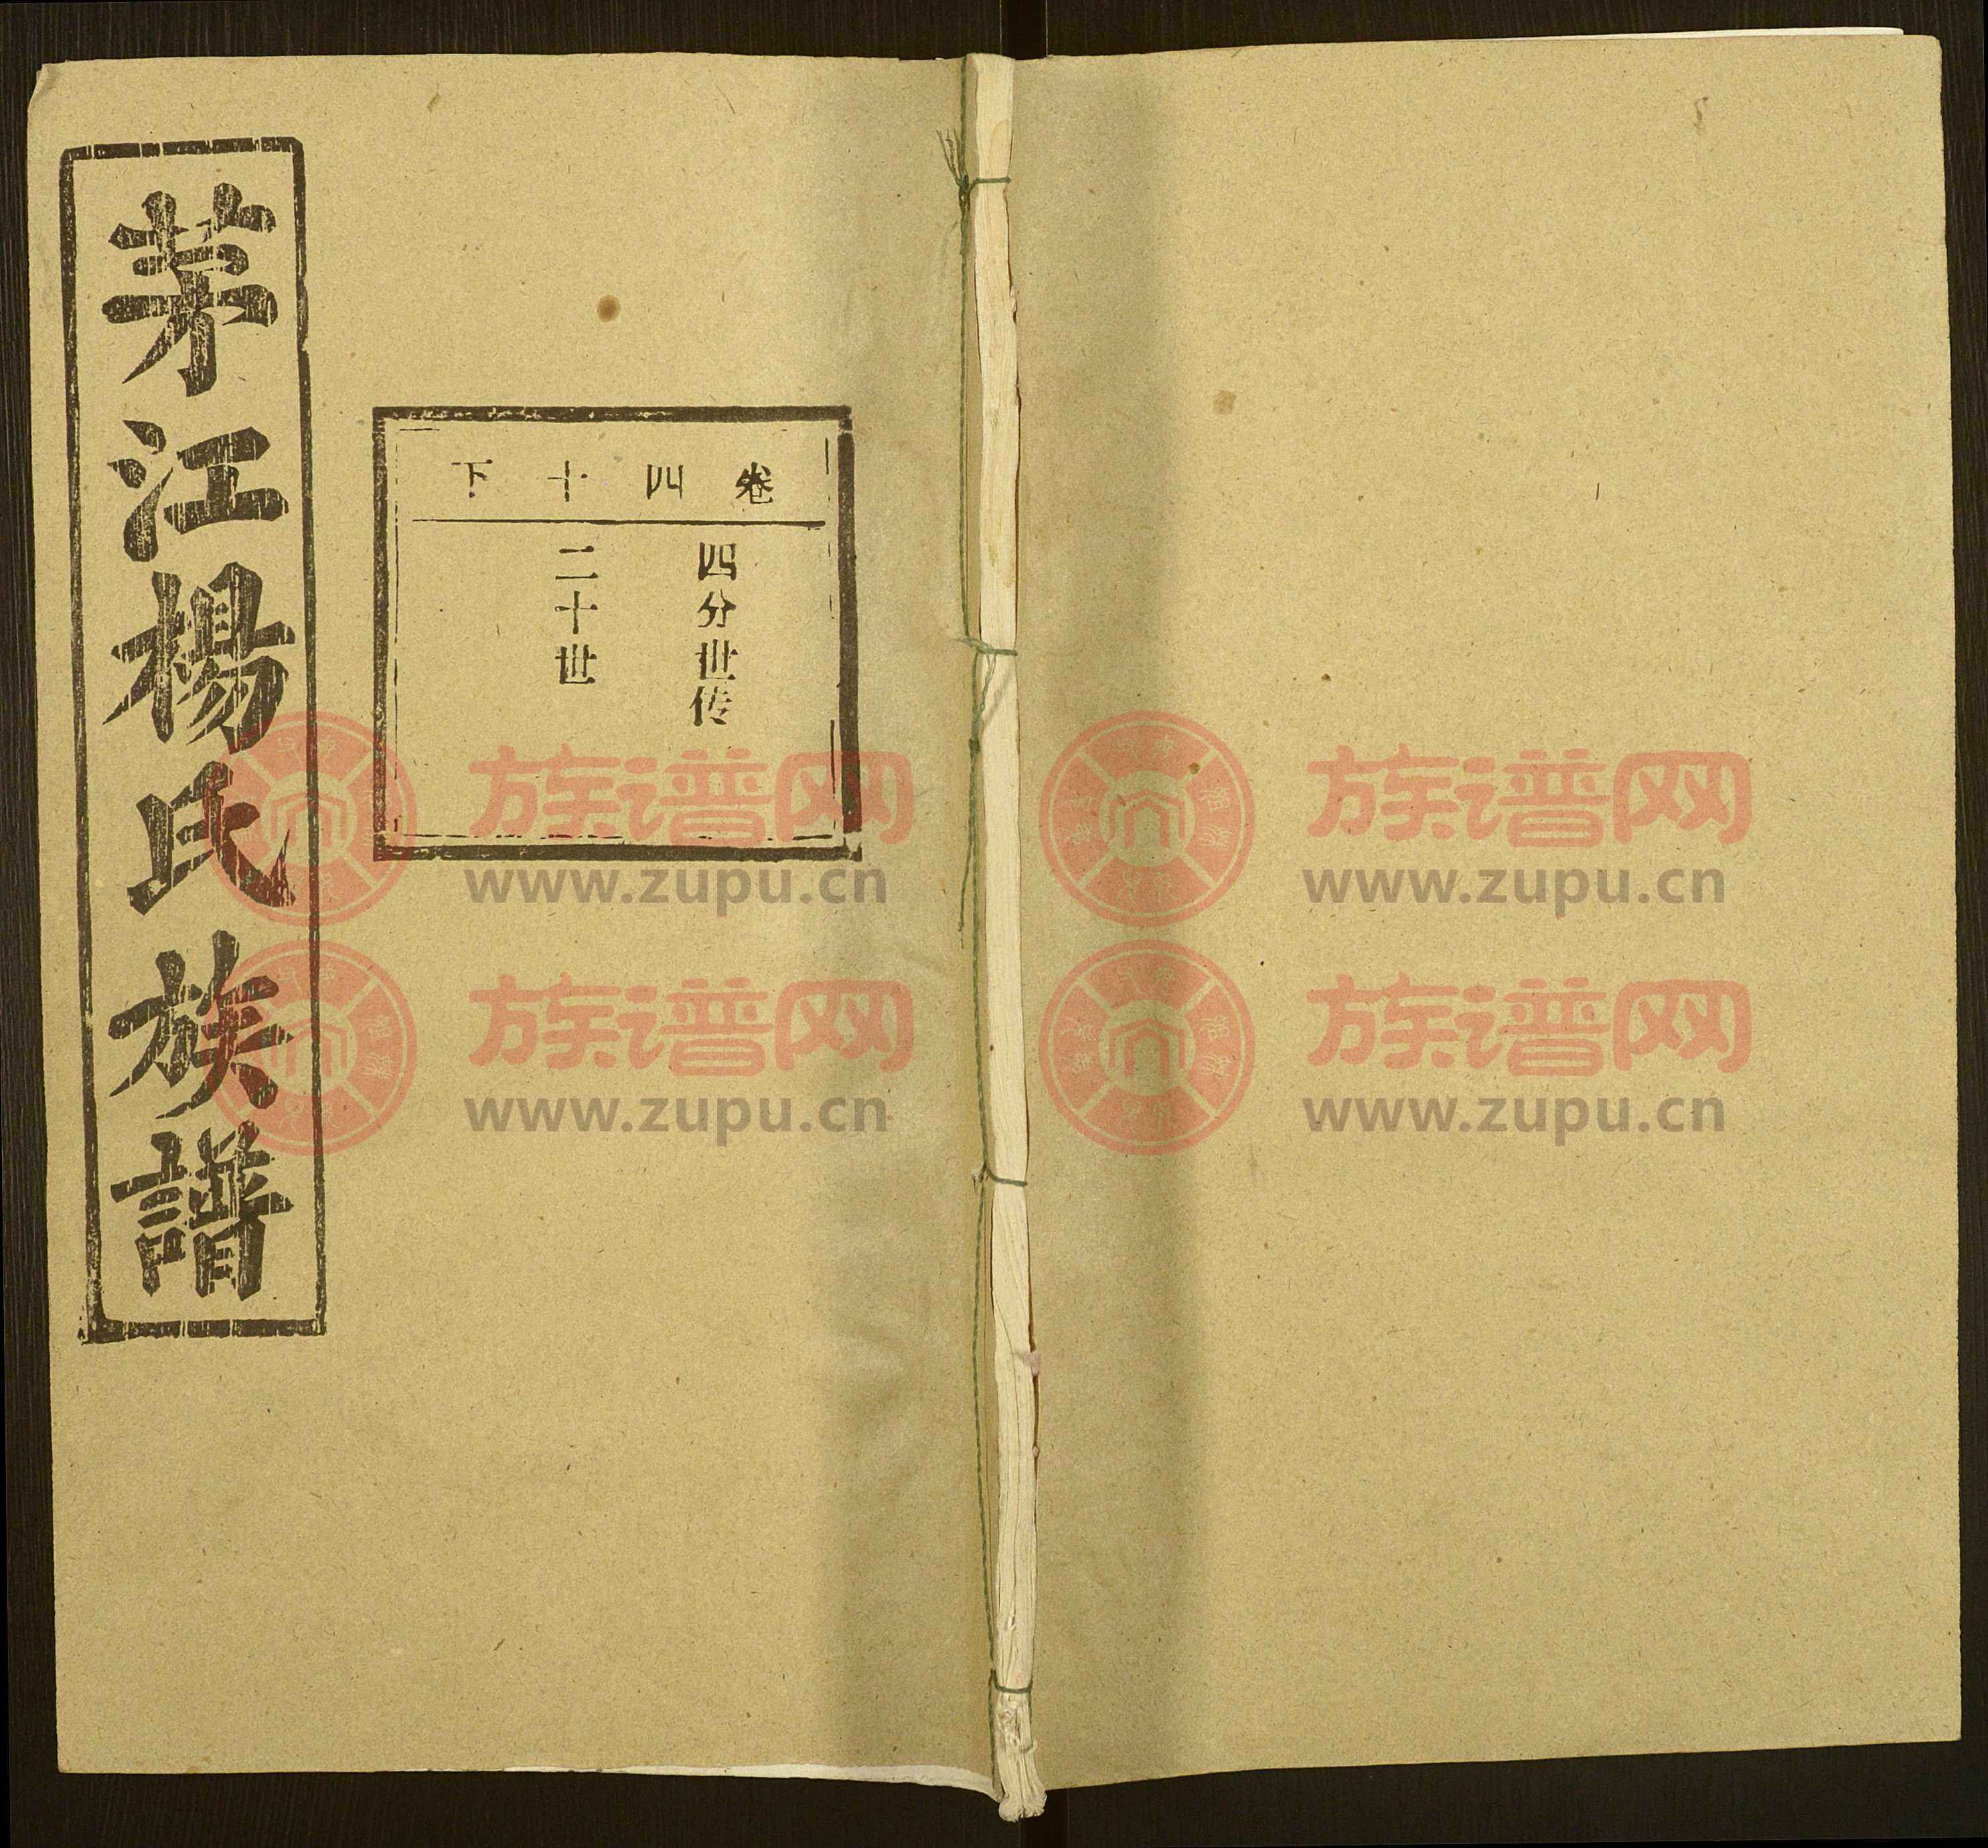 茅江楊氏族譜
卷四十下
四分世传
二十世
族谱网
www.zupu.cn
族谱网
www.zupu.cn
族谱网
www.zupu.cn
族谱网
www.zupu.cn